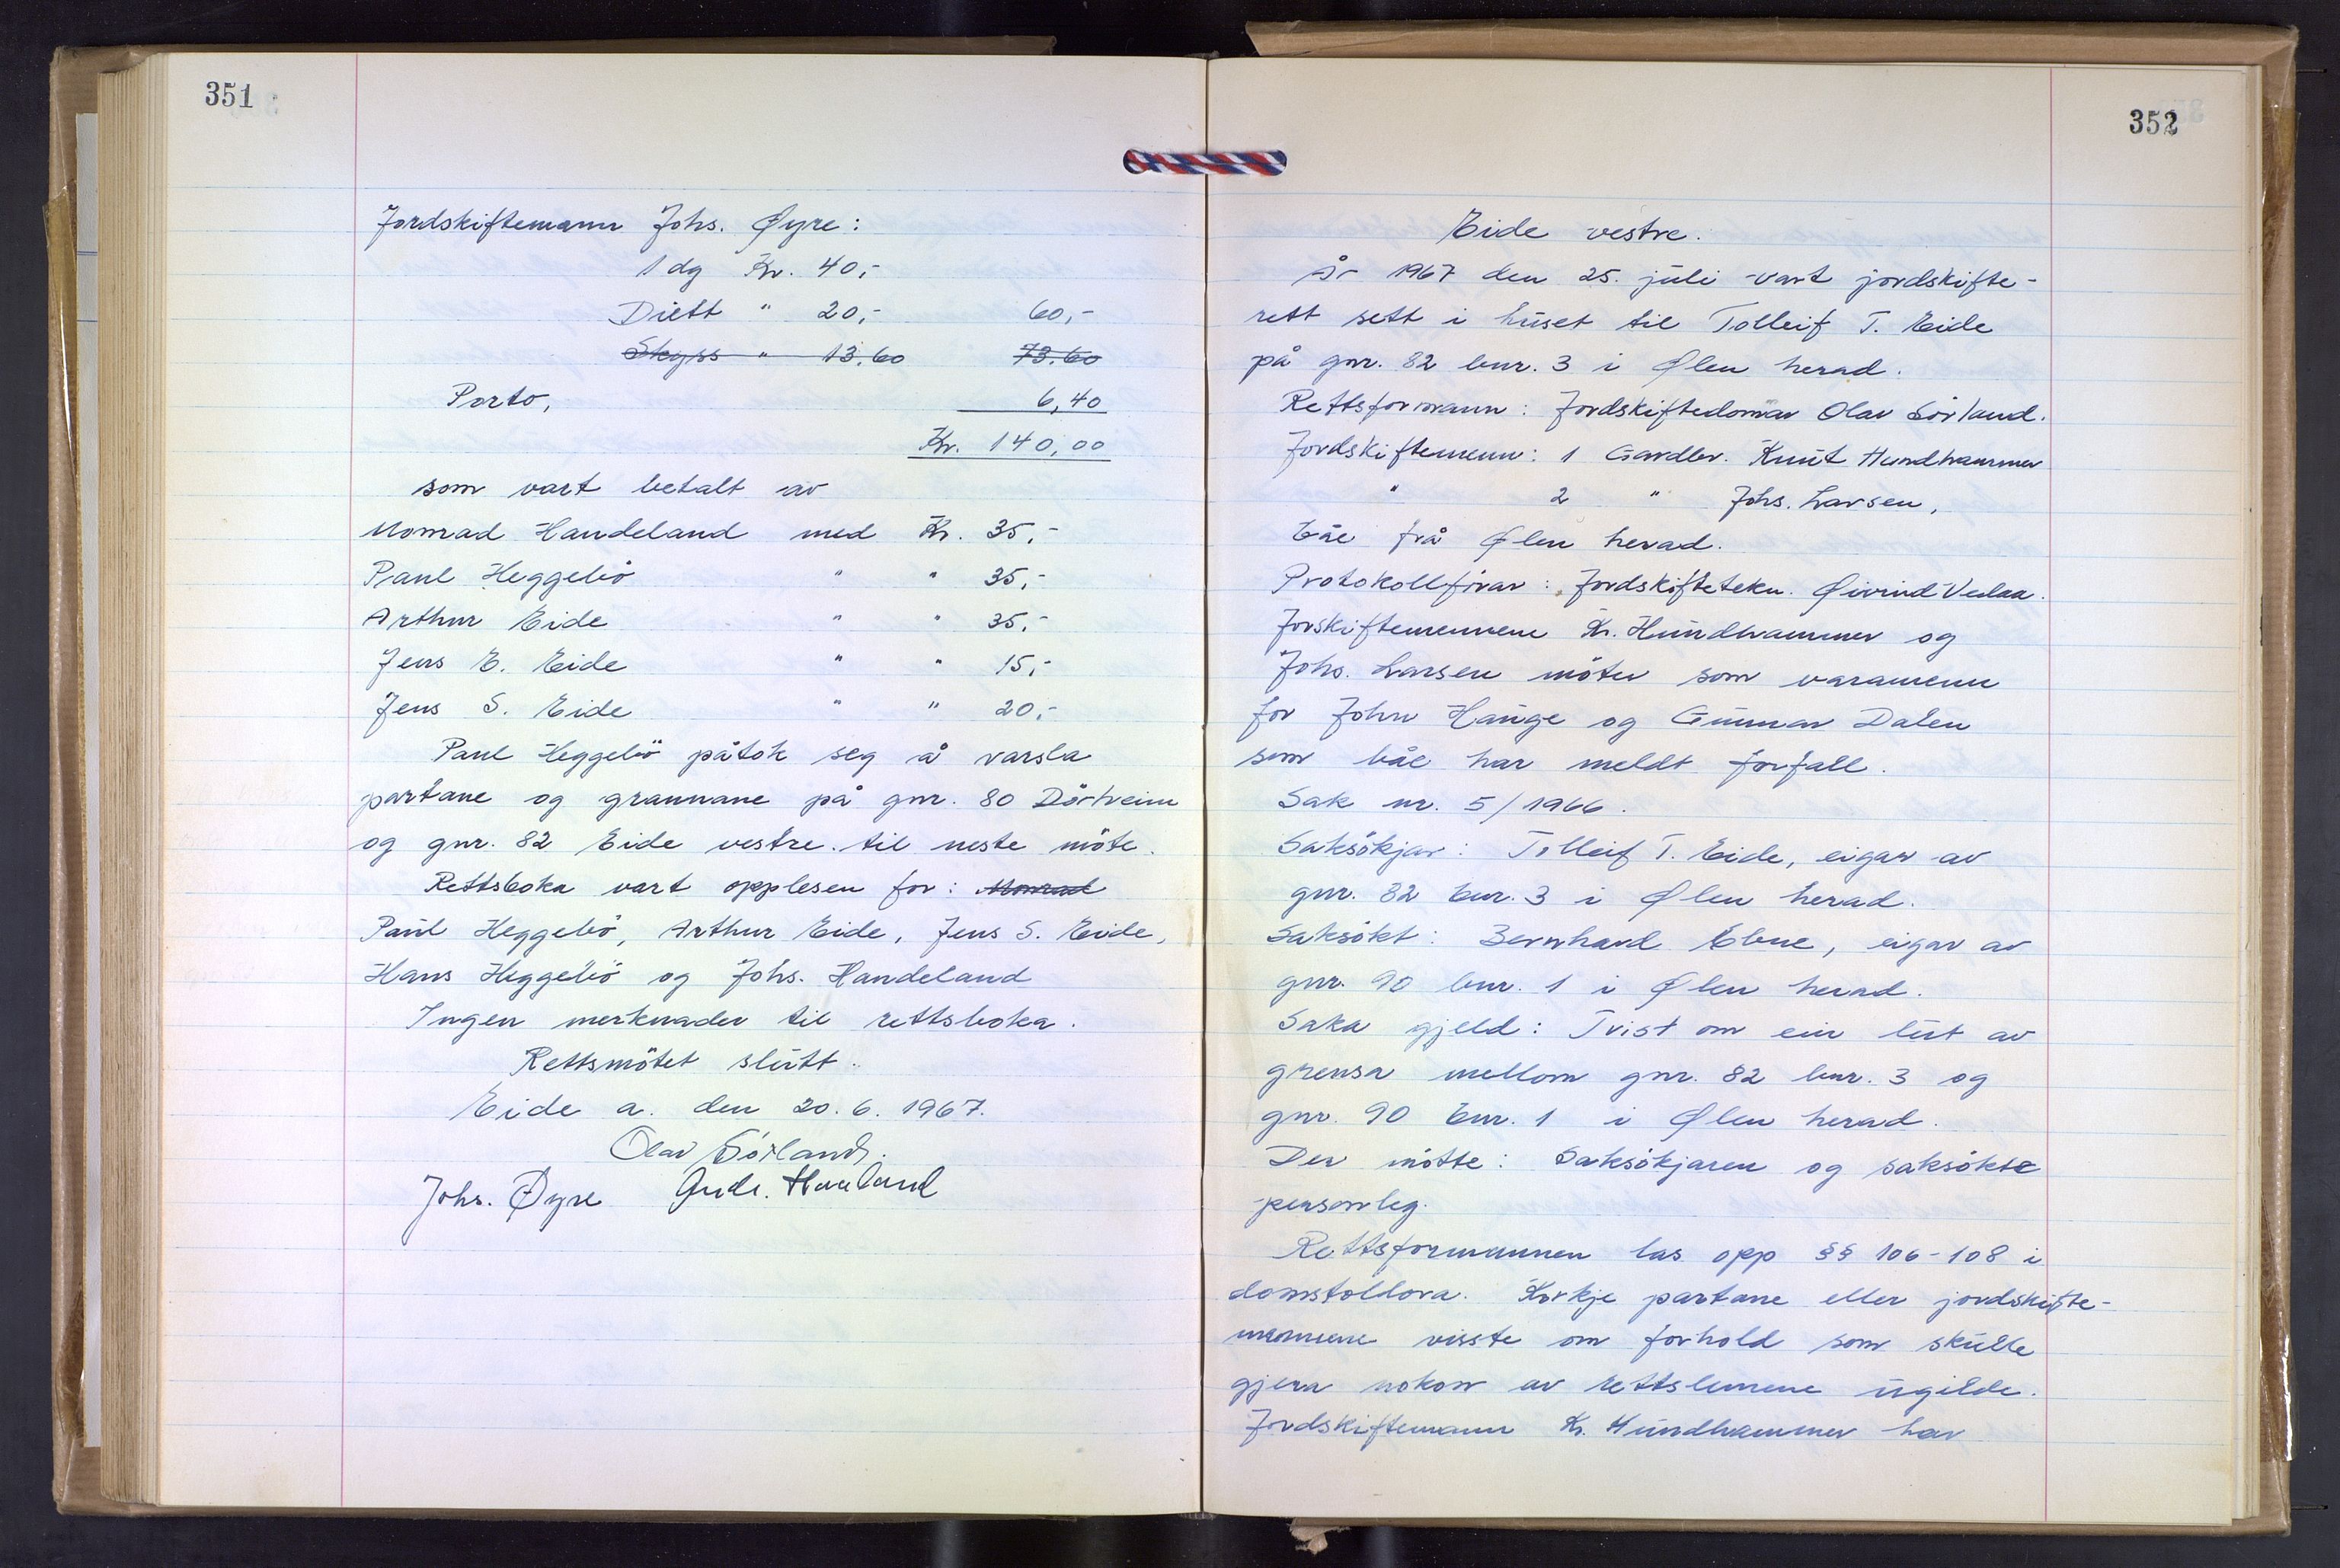 351
Jordskiftemann Johs. Øyre:
1 dg Kr. 40,-
Diett " 20,- 60,-
Skyss " 13.60 73.60
Porto, 6,40
Kr. 140,00
som vart betalt av
Monrad Handeland med Kr. 35,-
Paul Heggebö " " 35,-
Arthur Eide " " 35,-
Jens E. Eide " " 15,-
Jens S. Eide " " 20,-
Paul Heggebö påtok seg å varsla
partane og grannane på gnr. 80 Dörheim
og gnr. 82 Eide vestre til neste möte.
Rettsboka vart opplesen for: Monrad
Paul Heggebö, Arthur Eide, Jens S. Eide,
Hans Heggebö og Johs. Handeland
Ingen merknader til rettsboka.
Rettsmötet slutt.
Eide a. den 20.6.1967.
Olav Sörland.
Johs. Øyre Gudr. Haaland
352
Eide vestre.
År 1967 den 25. juli vart jordskifte-
rett sett i huset til Tolleif T. Eide
på gnr. 82 bnr. 3 i Ølen herad.
Rettsformann: Jordskiftedomar Olav Sörland.
Jordskiftemenn: 1 Gardbr. Knut Hundhammer
" 2 " Johs. Larsen,
båe frå Ølen herad.
Protokollförar: Jordskifteteku. Øivind Vedaa.
Jorskiftemennene K. Hundhammer og
Johs. Larsen möter som varamenn
for John Hauge og Gunnar Dalen
som båe har meldt forfall.
Sak nr. 5/1966.
Saksökjar: Tolleif T. Eide, eigar av
gnr. 82 bnr. 3 i Ølen herad.
Saksökt: Bernhard Ebne, eigar av
gnr. 90 bnr. 1 i Ølen herad.
Saka gjeld: Tvist om ein lut av
grensa mellom gnr. 82 bnr. 3 og
gnr. 90 bnr. 1 i Ølen herad.
Der mötte: Saksökjaren og saksökte
personleg.
Rettsformannen las opp §§ 106-108 i
domstollova. Korkje partane eller jordskifte-
mennene visste om forhold som skulle
gjera nokon av rettslemene ugilde.
Jordskiftemann K. Hundhammer har